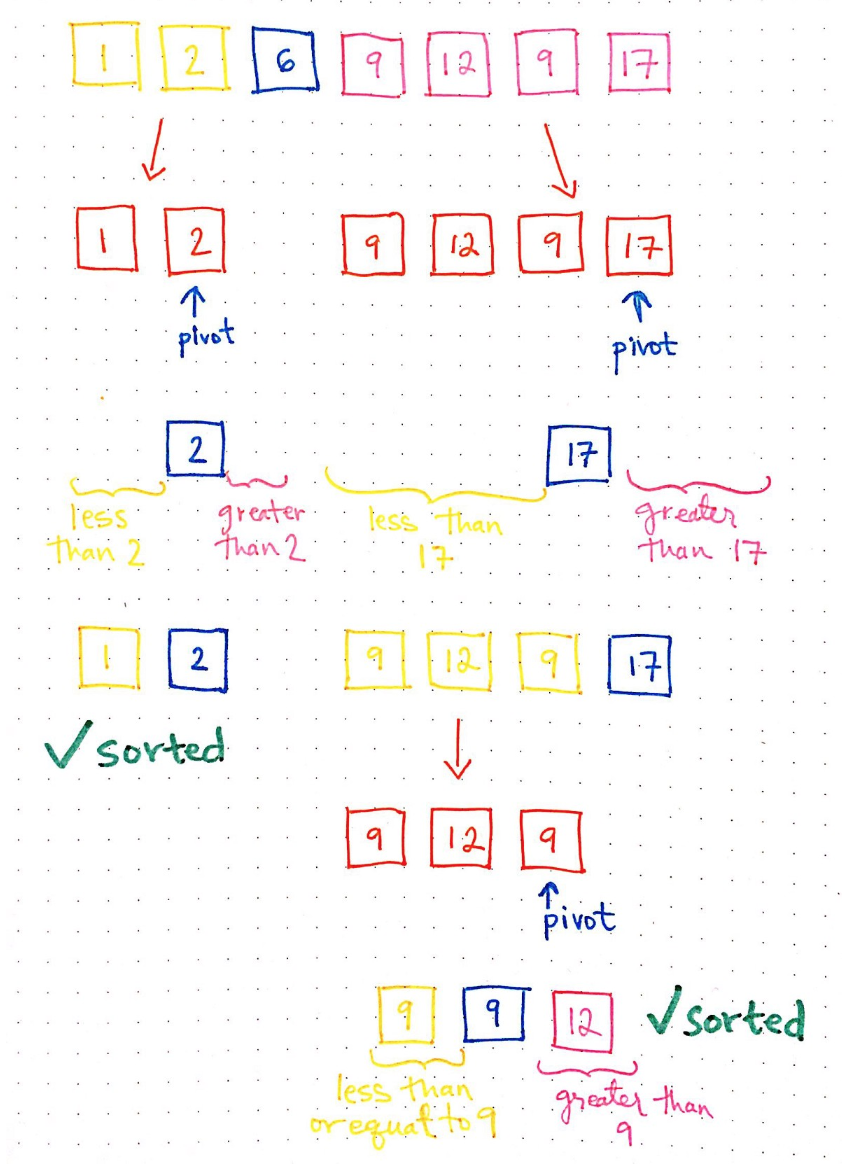 1 2 6 9 12 9 17
1 2 9 12 9 17
pivot
pivot
2 17
less
than 2
greater
than 2
less than
17
greater
than 17
1 2 9 12 9 17
✓sorted
9 12 9
pivot
9 9 12 ✓sorted
less than
or equal to 9
greater than
9